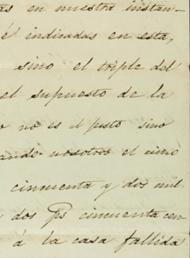 en nuestra instan-
é indicadas en esta,
sino el triple del
el supuesto de la
no es el justo sino
ando nosotros el
cincuenta y dos mil
dos Ps cincuenta cen
á la casa fallida